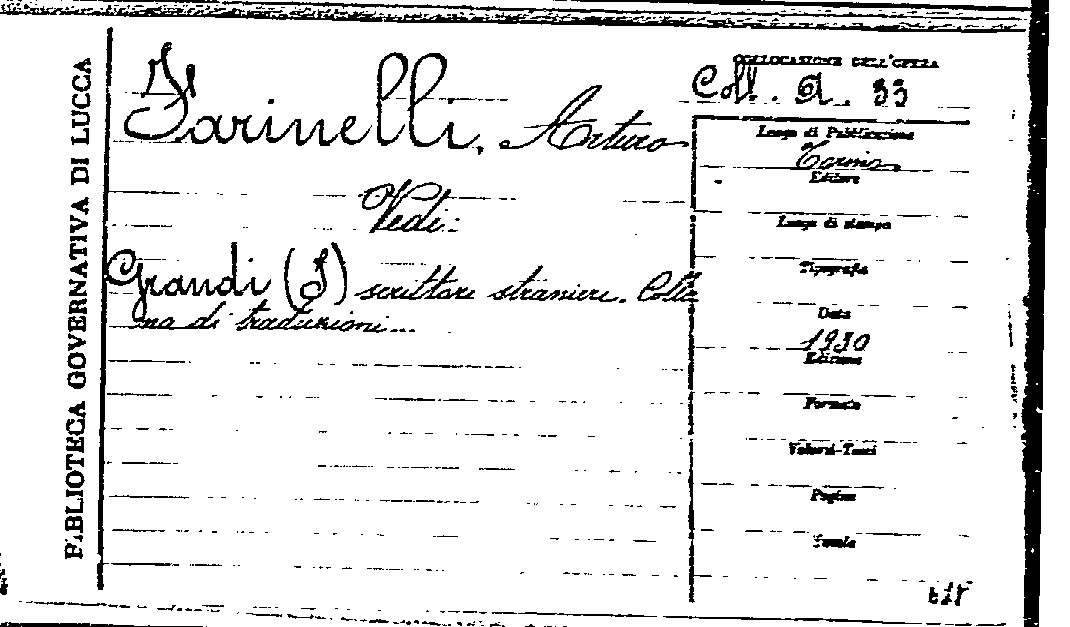 BIBLIOTECA GOVERNATIVA DI LUCCA
COLLOCAZIONE DELL'OPERA
Coll. A. 33
Farinelli, Arturo
Vedi:
Grandi (I) scrittori stranieri. Colla
na di traduzioni...
Luogo di Pubblicazione
Torino
Editore
Luogo di stampa
Tipografia
Data
1930
Edizione
Formato
Volumi-Tomi
Pagine
Tavole